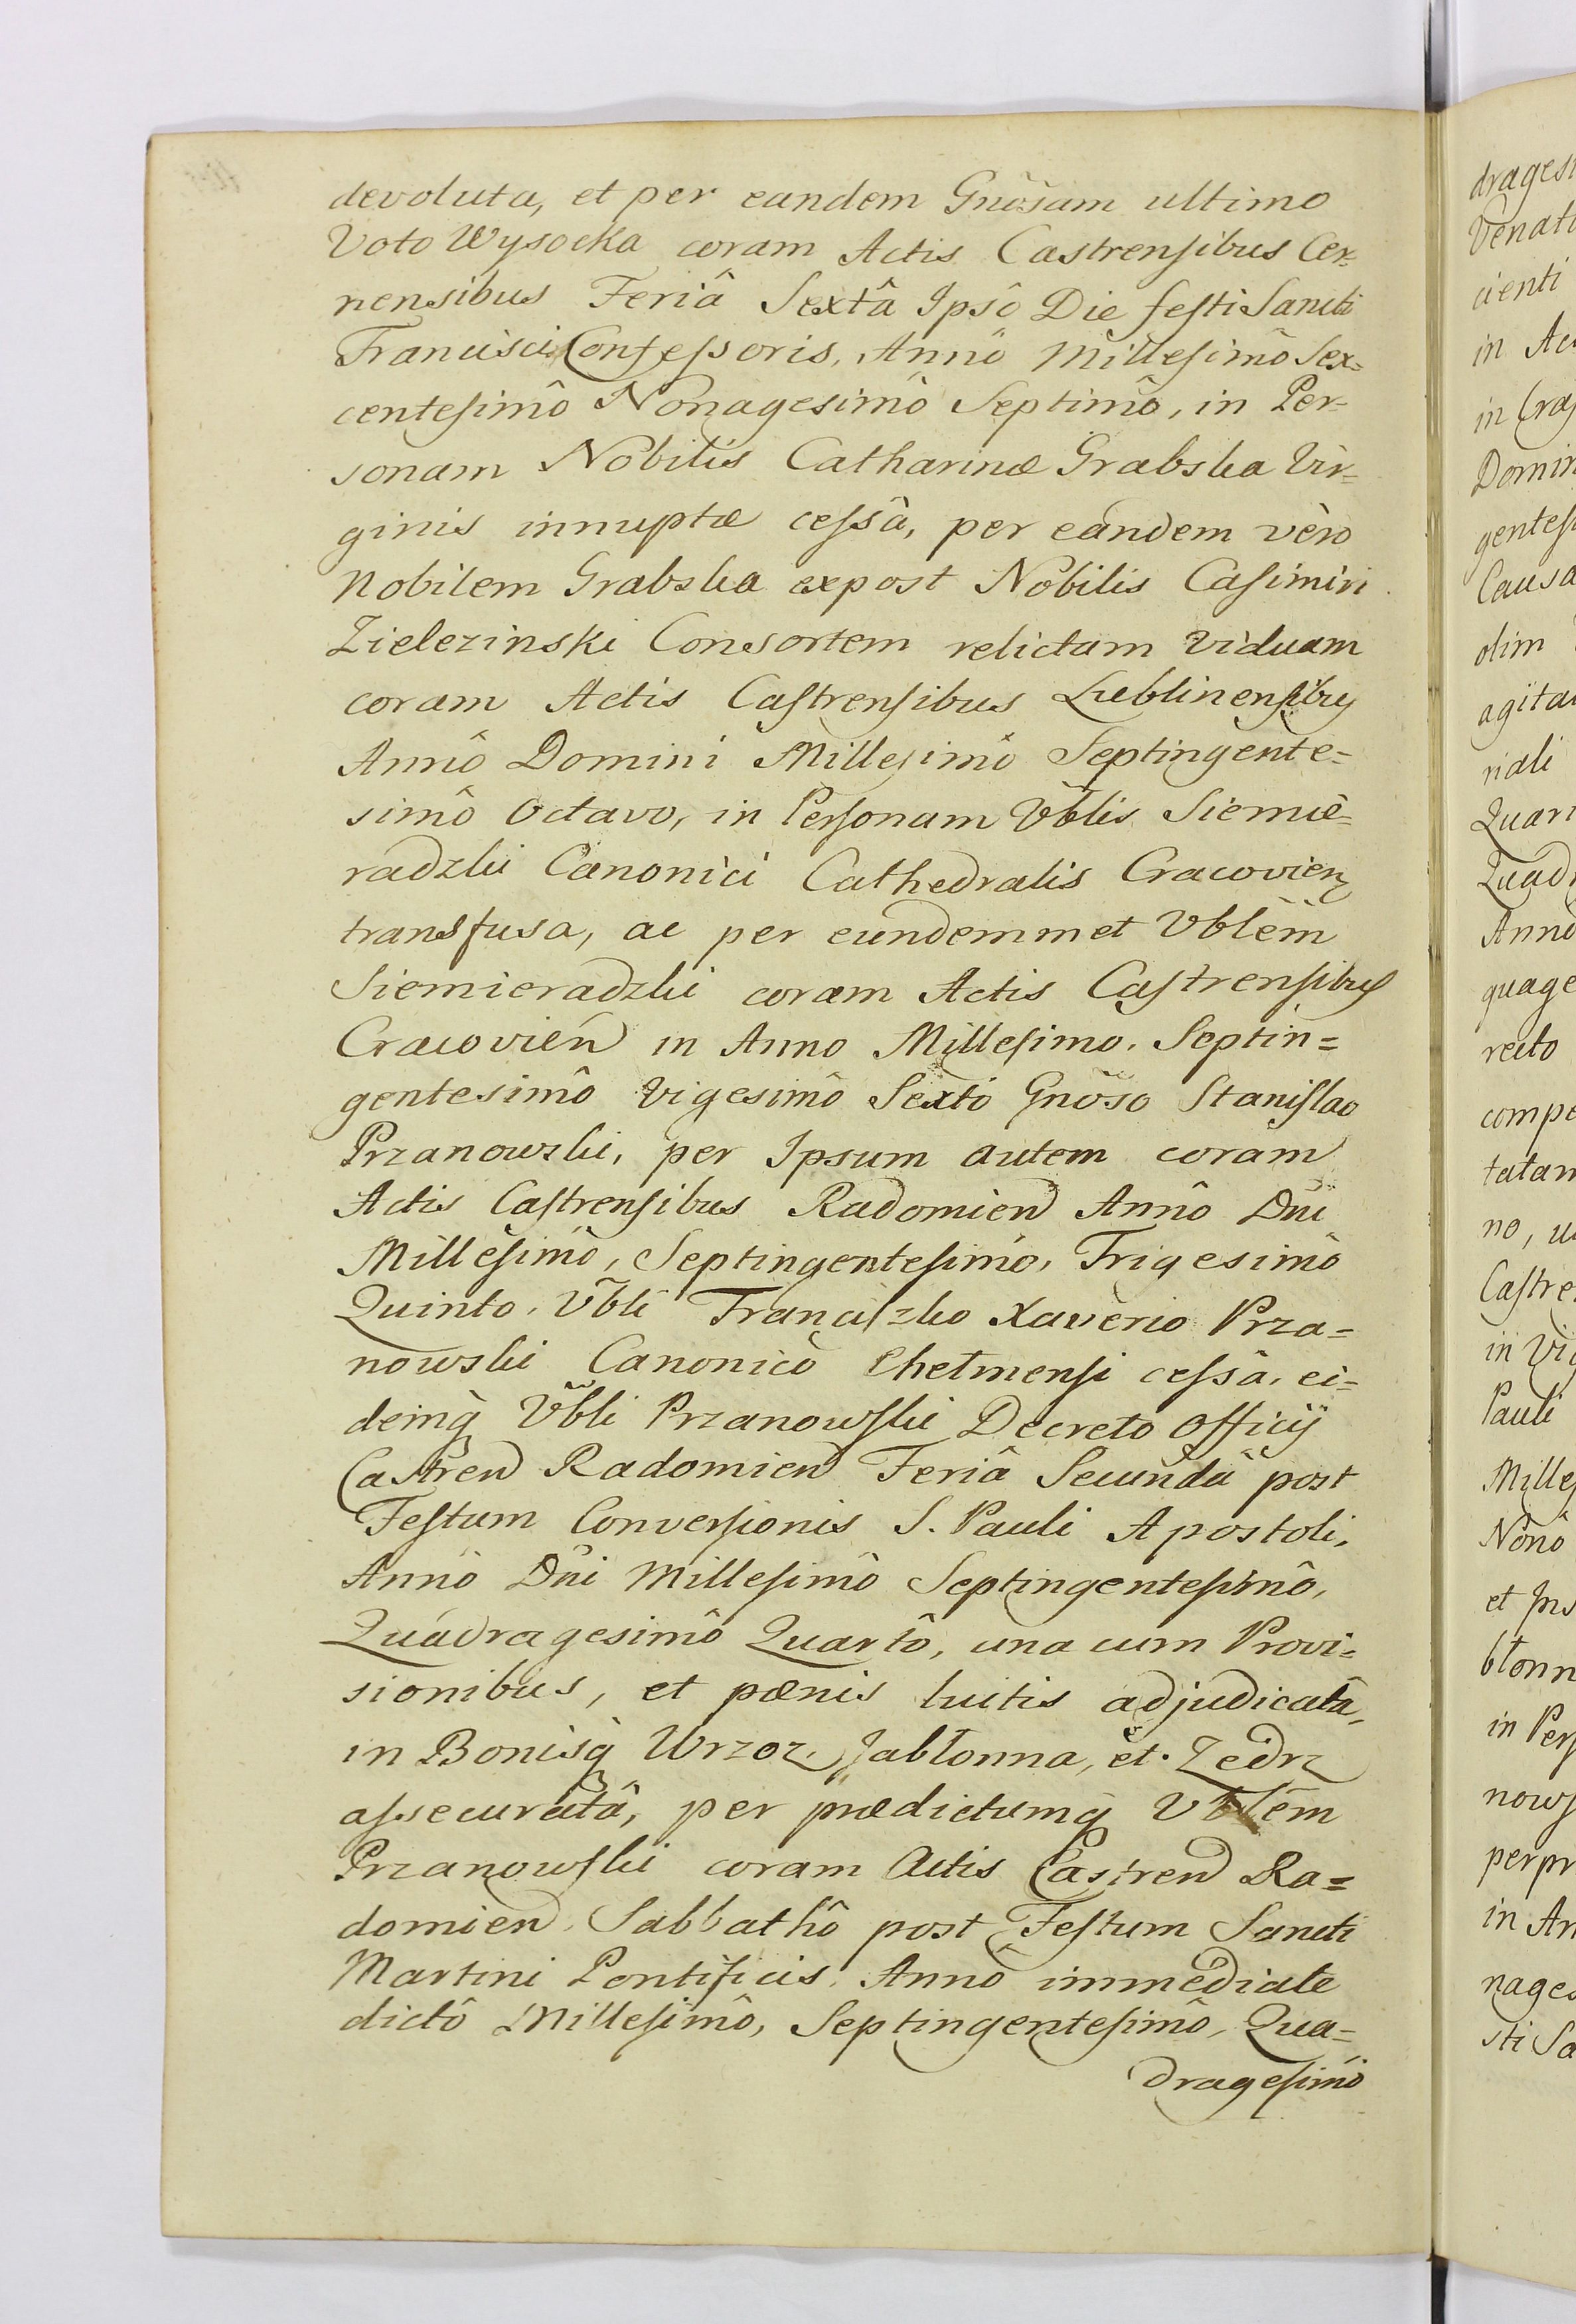 devoluta, et per eandem Gnõsam ultimo
Voto Wysocka coram Actis Castrensibus Cer=
nensibus Feriâ Sextâ Ipsô Die festi Sancti
Francisci Confessoris, Annô Millesimô Sex=
centesimô Nonagesimô Septimô, in Per=
sonam Nobilis Catharinæ Grabska Vir=
ginis innuptæ cessâ, per eandem vero
Nobilem Grabska expost Nobilis Casimiri
Zielezinski Consortem relictam Viduam
coram Actis Castrensibus Lublinensibus
Annô Domini Millesimô Septingente=
simô Octavo, in Personam Vblis Siemie=
radzki Canonici Cathedralis Cracovien
transfusa, ac per eundemmet Vblem
Siemieradzki coram Actis Castrensibus
Cracovien in Anno Millesimo, Septin=
gentesimô Vigesimô Sexto Gnõso Stanislao
Przanowski, per Ipsum autem coram
Actis Castrensibus Radomien Annô Dni
Millesimô, Septingentesimô, Trigesimô
Quinto, Vbli Franciszko Xaverio Prza=
nowski Canonico Chełmensi cessâ, ei=
demq̃ Vbli Przanowski Decreto Officij
Castren Radomien Feriâ Secundâ post
Festum Conversionis S. Pauli Apostoli,
Annô Dñi Millesimô Septingentesimô,
Quadragesimô Quartô, una cum Provi=
sionibus, et pœnis luitis adjudicatâ,
in Bonisq̃ Wrzoz, Jabłonna, et Zedrz
assecuratâ, per prædictumq̃ Vblem
Przanowski coram Actis Castren Ra=
domien, Sabbathô post Festum Sancti
Martini Pontificis, Annô immediate
dictô Millesimô, Septingentesimô, Qua=
dragesimô
dragesi
Venati
cienti
in Ac
in Cra
Domin
gentes
Causa
olim
agita
riali
Quar
Quadr
Anno
quage
recto
compe
tatam
no, u
Castre
in Vig
Pauli
Milles
Nonô
et Ins
błonn
in Pers
nows
per pr
in An
nages
sti Sa